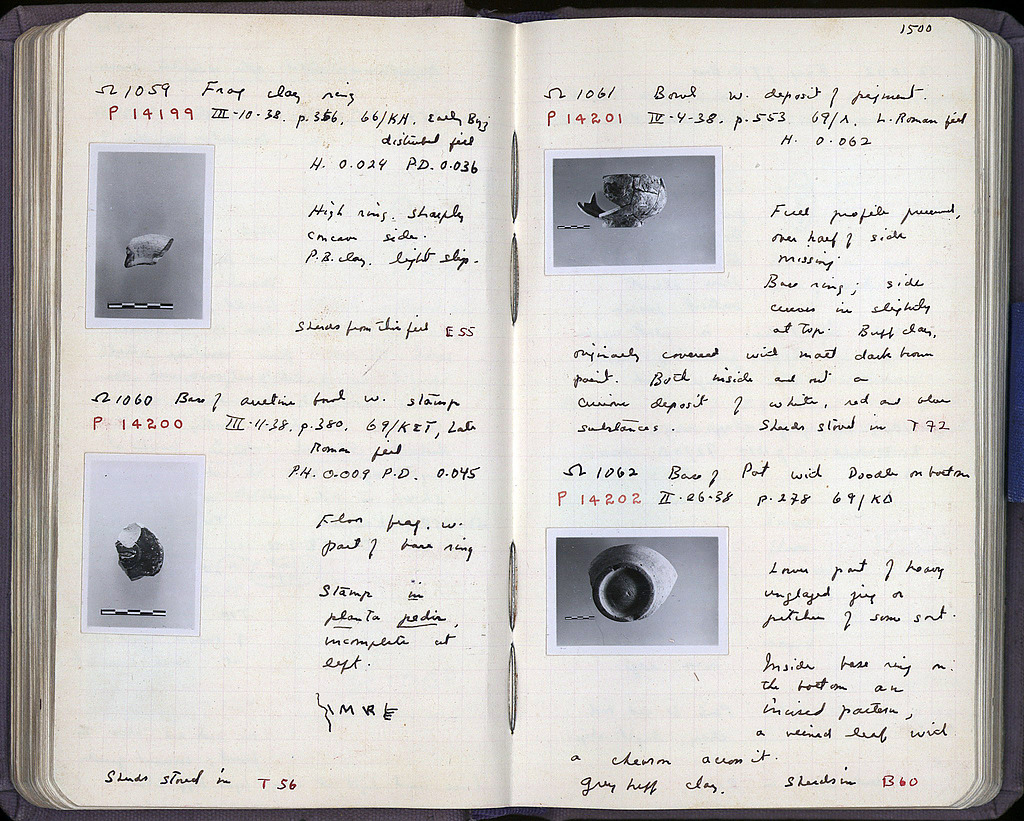 Ω 1059 Frag clay ring
P 14199 III-10-38. p. 356, 66/KH, Early Byz
disturbed fill
H. 0.024 P.D. 0.036
High ring. sharply
concave side.
P.B. clay. light slip.
Sherds from this fill E 55
Ω 1060 Base of arretine bowl w. stamp
P 14200 III-11-38. p. 380. 69/KET, Late
Roman fill
P.H. 0.009 P.D. 0.045
Floor frag. w.
part of base ring
Stamp in
planta pedis,
incomplete at
left.
MRE
Sherds stored in T 56
1500
Ω 1061 Bowl w. deposit of pigment.
P 14201 IV-4-38. p. 553 69/Λ. L. Roman fill
H. 0.062
Full profile preserved,
over half of side
missing
Base ring; side
curves in slightly
at top. Buff clay,
originally covered with matt dark brown
paint. Both inside and out a
curious deposit of white, red and blue
substances. Sherds stored in T 72
Ω 1062 Base of Pot with Doodle on bottom
P 14202 II-26-38 p. 278 69/KD
Lower part of heavy
unglazed jug or
pitcher of some sort.
Inside base ring on
the bottom an
incised pattern,
a veined leaf with
a chevron across it.
Grey buff clay. Sherds in B 60